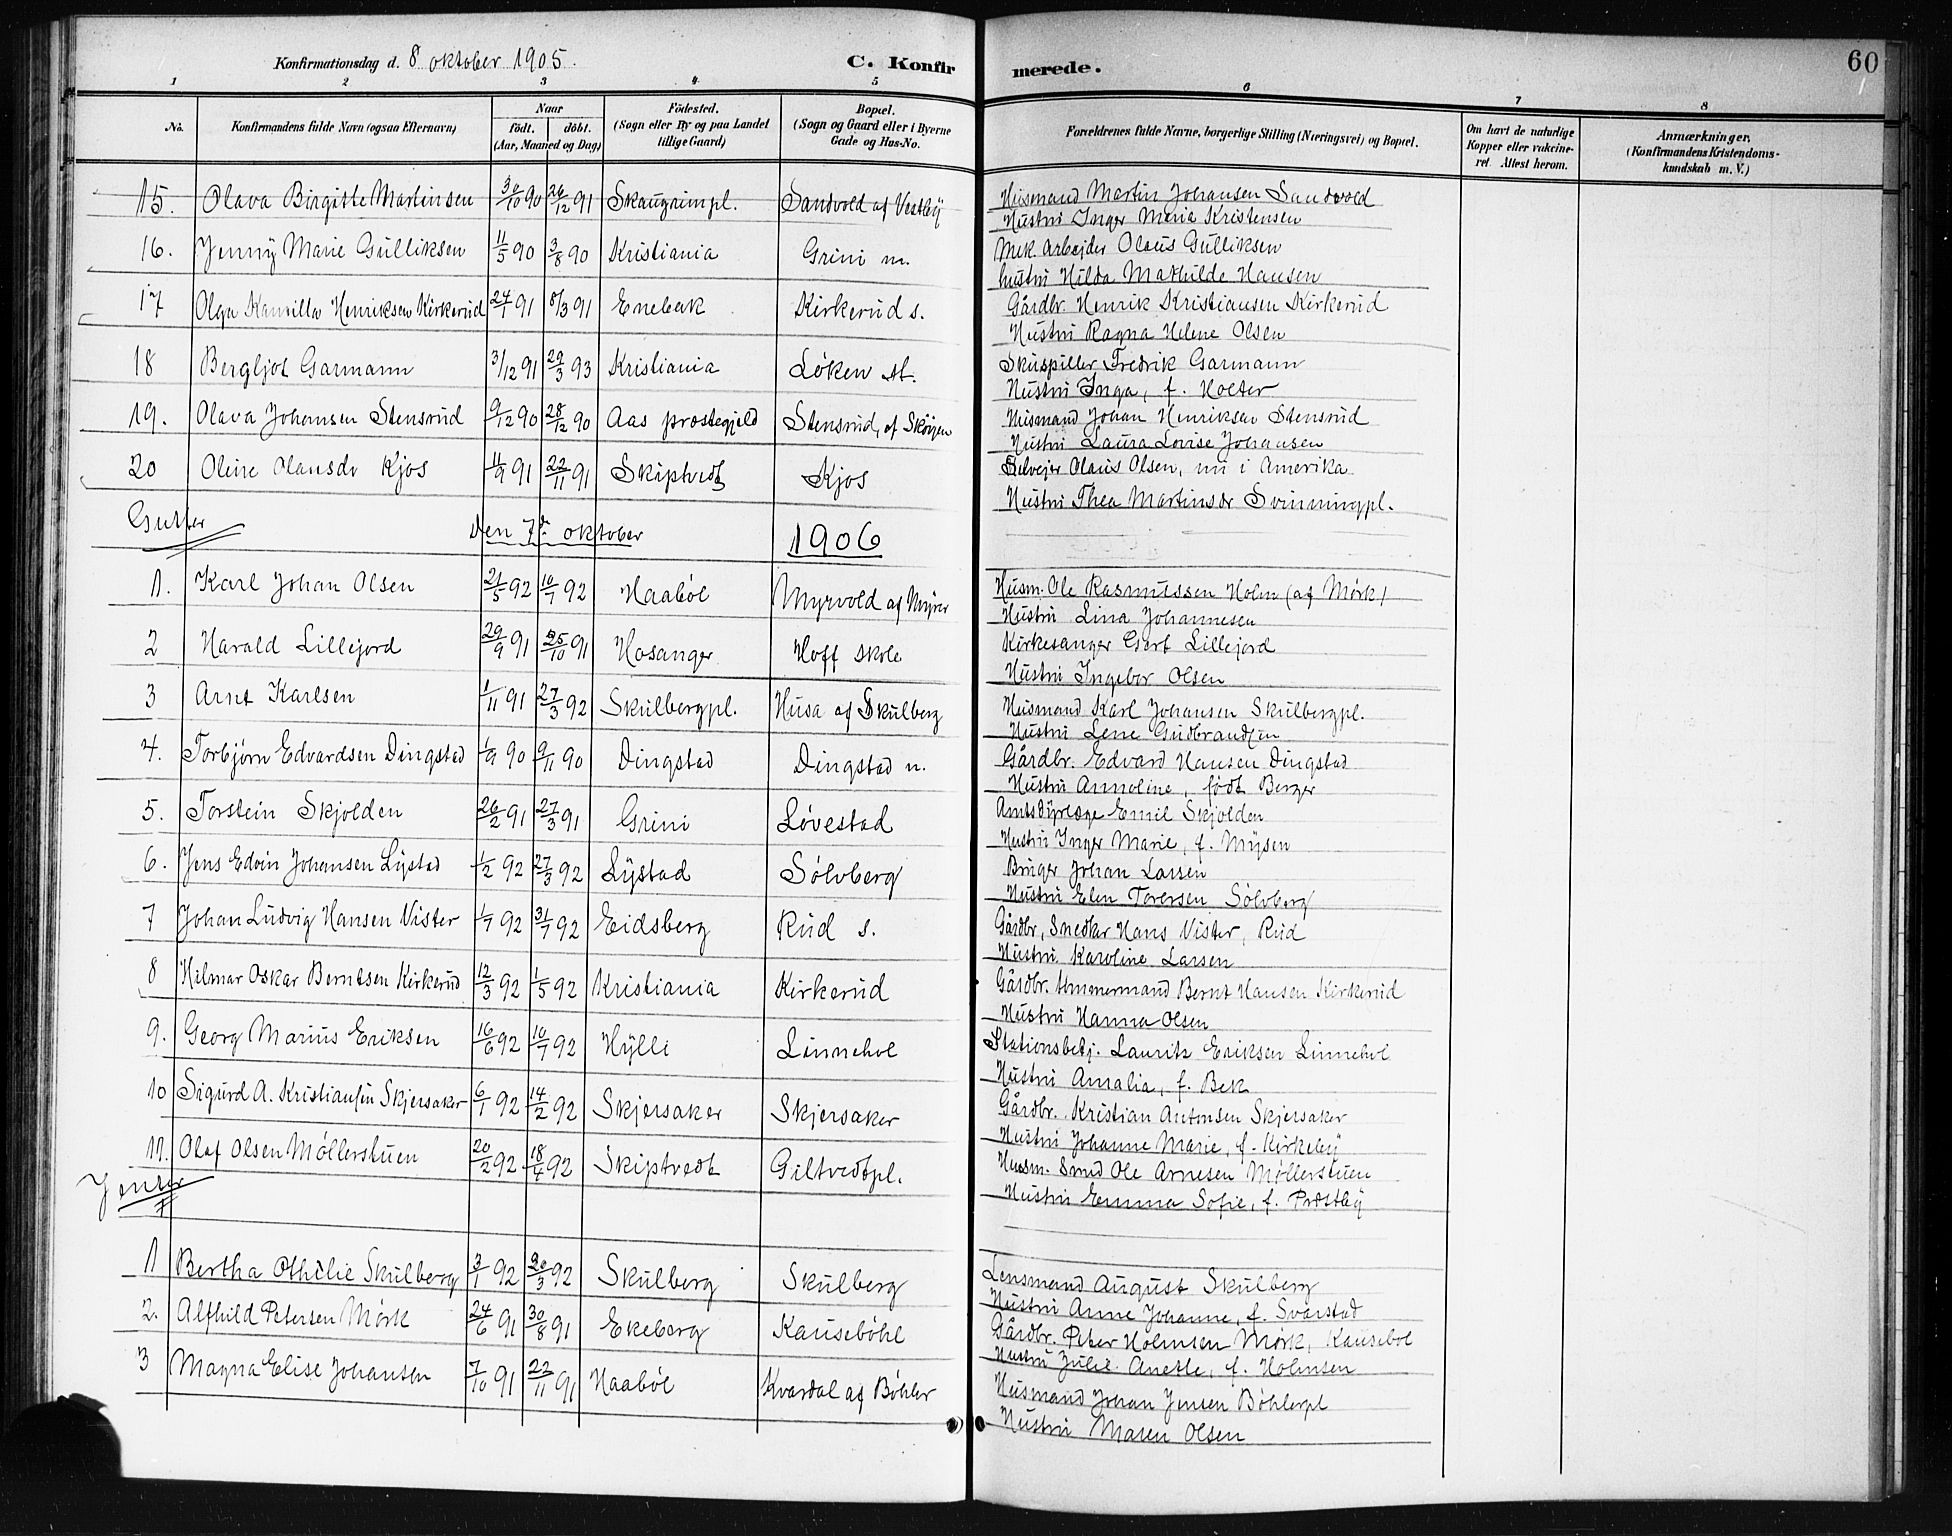 Konfirmationsdag d. 8 oktober 1905. C. Konfirmerede. 60
1 2 3 4 5 6 7 8
No. Konfirmandens fulde Navn (ogsaa Efternavn) Naar født. døbt. (Aar, Maaned og Dag) Fødested. (Sogn eller By og paa Landet tillige Gaard) Bopæl. (Sogn og Gaard eller i Byerne Gade og Hus-No. Forældrenes fulde Navne, borgerlige Stilling (Næringsvei) og Bopæl. Om havt de naturlige Kopper eller vaccineret. Attest herom. Anmærkninger, (Konfirmandens Kristendomskundskab m. V.)
15. Olava Birgitte Martinsen 30/10 90 26/12 91 Skaugrimpl. Sandvold af Vestby Husmand Martin Johansen Sandvold
Hustru Inger Marie Kristensen
16. Jenny Marie Gulliksen 11/5 90 3/8 90 Kristiania Grini m. Mek. Arbejder Olaus Gulliksen
hustru Hilda Mathilde Hansen
17 Olga Kamilla Henriksen Kirkerud 24/1 91 8/3 91 Enebak Kirkerud s. Gårdbr. Henrik Kristiansen Kirkerud
Hustru Ragna Helene Olsen
18 Bergljot Garmann 3/12 91 29/3 93 Kristiania Løken st. Skuspiller Fredrik Garmann
Hustru Inga, f. Holter
19. Olava Johansen Stensrud 9/12 90 28/12 90 Aas prostegjeld Stensrud, af Skøyen Husmand Johan Henriksen Stensrud
Hustru Laura Lovise Johansen
20 Oline Olausdr Kjos 11/9 91 22/11 91 Skiptvedt Kjos Selvejer Olaus Olsen, nu i Amerika
Hustru Thea Martinsdr Svinningpl.
Gutter Den 7de oktober 1906
1. Karl Johan Olsen 21/5 92 10/7 92 Haabøl Myrvold af Myrer Husm. Ole Rasmussen Holm (af Mørk)
Hustru Lina Johannesen
2 Harald Lillejord 29/9 91 25/10 91 Hosanger Hoff skole Kirkesanger Gert Lillejord
Hustru Ingebor Olsen
3 Arnt Karlsen 1/11 91 27/3 92 Skulbergpl. Husa af Skulberg Husmand Karl Johansen Skulbergpl.
Hustru Lene Gudbrandsen
4. Torbjørn Edvardsen Dingstad 1/9 90 9/11 90 Dingstad Dingstad n. Gårdbr. Edvard Hansen Dingstad
Hustru Annoline, født Berger
5. Torstein Skjolden 26/2 91 27/3 91 Grini Løvestad Amtsdyrlæge Emil Skjolden
Hustru Inger Marie, f. Mysen
6. Jens Edvin Johansen Lystad 1/2 92 27/3 92 Lystad Sølvberg Bruger Johan Larsen
Hustru Elen Torersen Sølvberg
7 Johan Ludvig Hansen Vister 1/7 92 31/7 92 Eidsberg Rud s. Gårdbr, Snedker Hans Vister, Rud
Hustru Karoline Larsen
8 Hilmar Oskar Berntsen Kirkerud 12/3 92 1/5 92 Kristiania Kirkerud Gårdbr. tømmermand Bernt Hansen Kirkerud
Hustru Hanna Olsen
9. Georg Marius Eriksen 16/6 92 10/7 92 Hylli Linnehol Stationsbetj. Lauritz Eriksen Linnehol
Hustru Amalia, f. Bek
10 Sigurd A. Kristiansen Skjersaker 6/1 92 14/2 92 Skjersaker Skjersaker Gårdbr. Kristian Antonsen Skjersaker
Hustru Johanne Marie, f. Kirkeby
11. Olaf Olsen Møllerstuen 20/2 92 18/4 92 Skiptvedt Giltvedtpl. Husm. Smed Ole Arnesen Møllerstuen
Hustru Emma Sofie, f. Præstby
Jenter
1 Bertha Othilie Skulberg 3/1 92 20/3 92 Skulberg Skulberg Lensmand August Skulberg
Hustru Anne Johanne, f. Svarstad
2. Alfhild Petersen Mørk 24/6 91 30/8 91 Ekeberg Kausebøhl Gårdbr. Peter Holmsen Mørk, Kausebøl
Hustru Julie Anette, f. Holmsen
3 Magna Elise Johansen 7/10 91 22/11 91 Haabøl Kvardal af Bøhler Husmand Johan Jensen Bøhlerpl
Hustru Maren Olsen